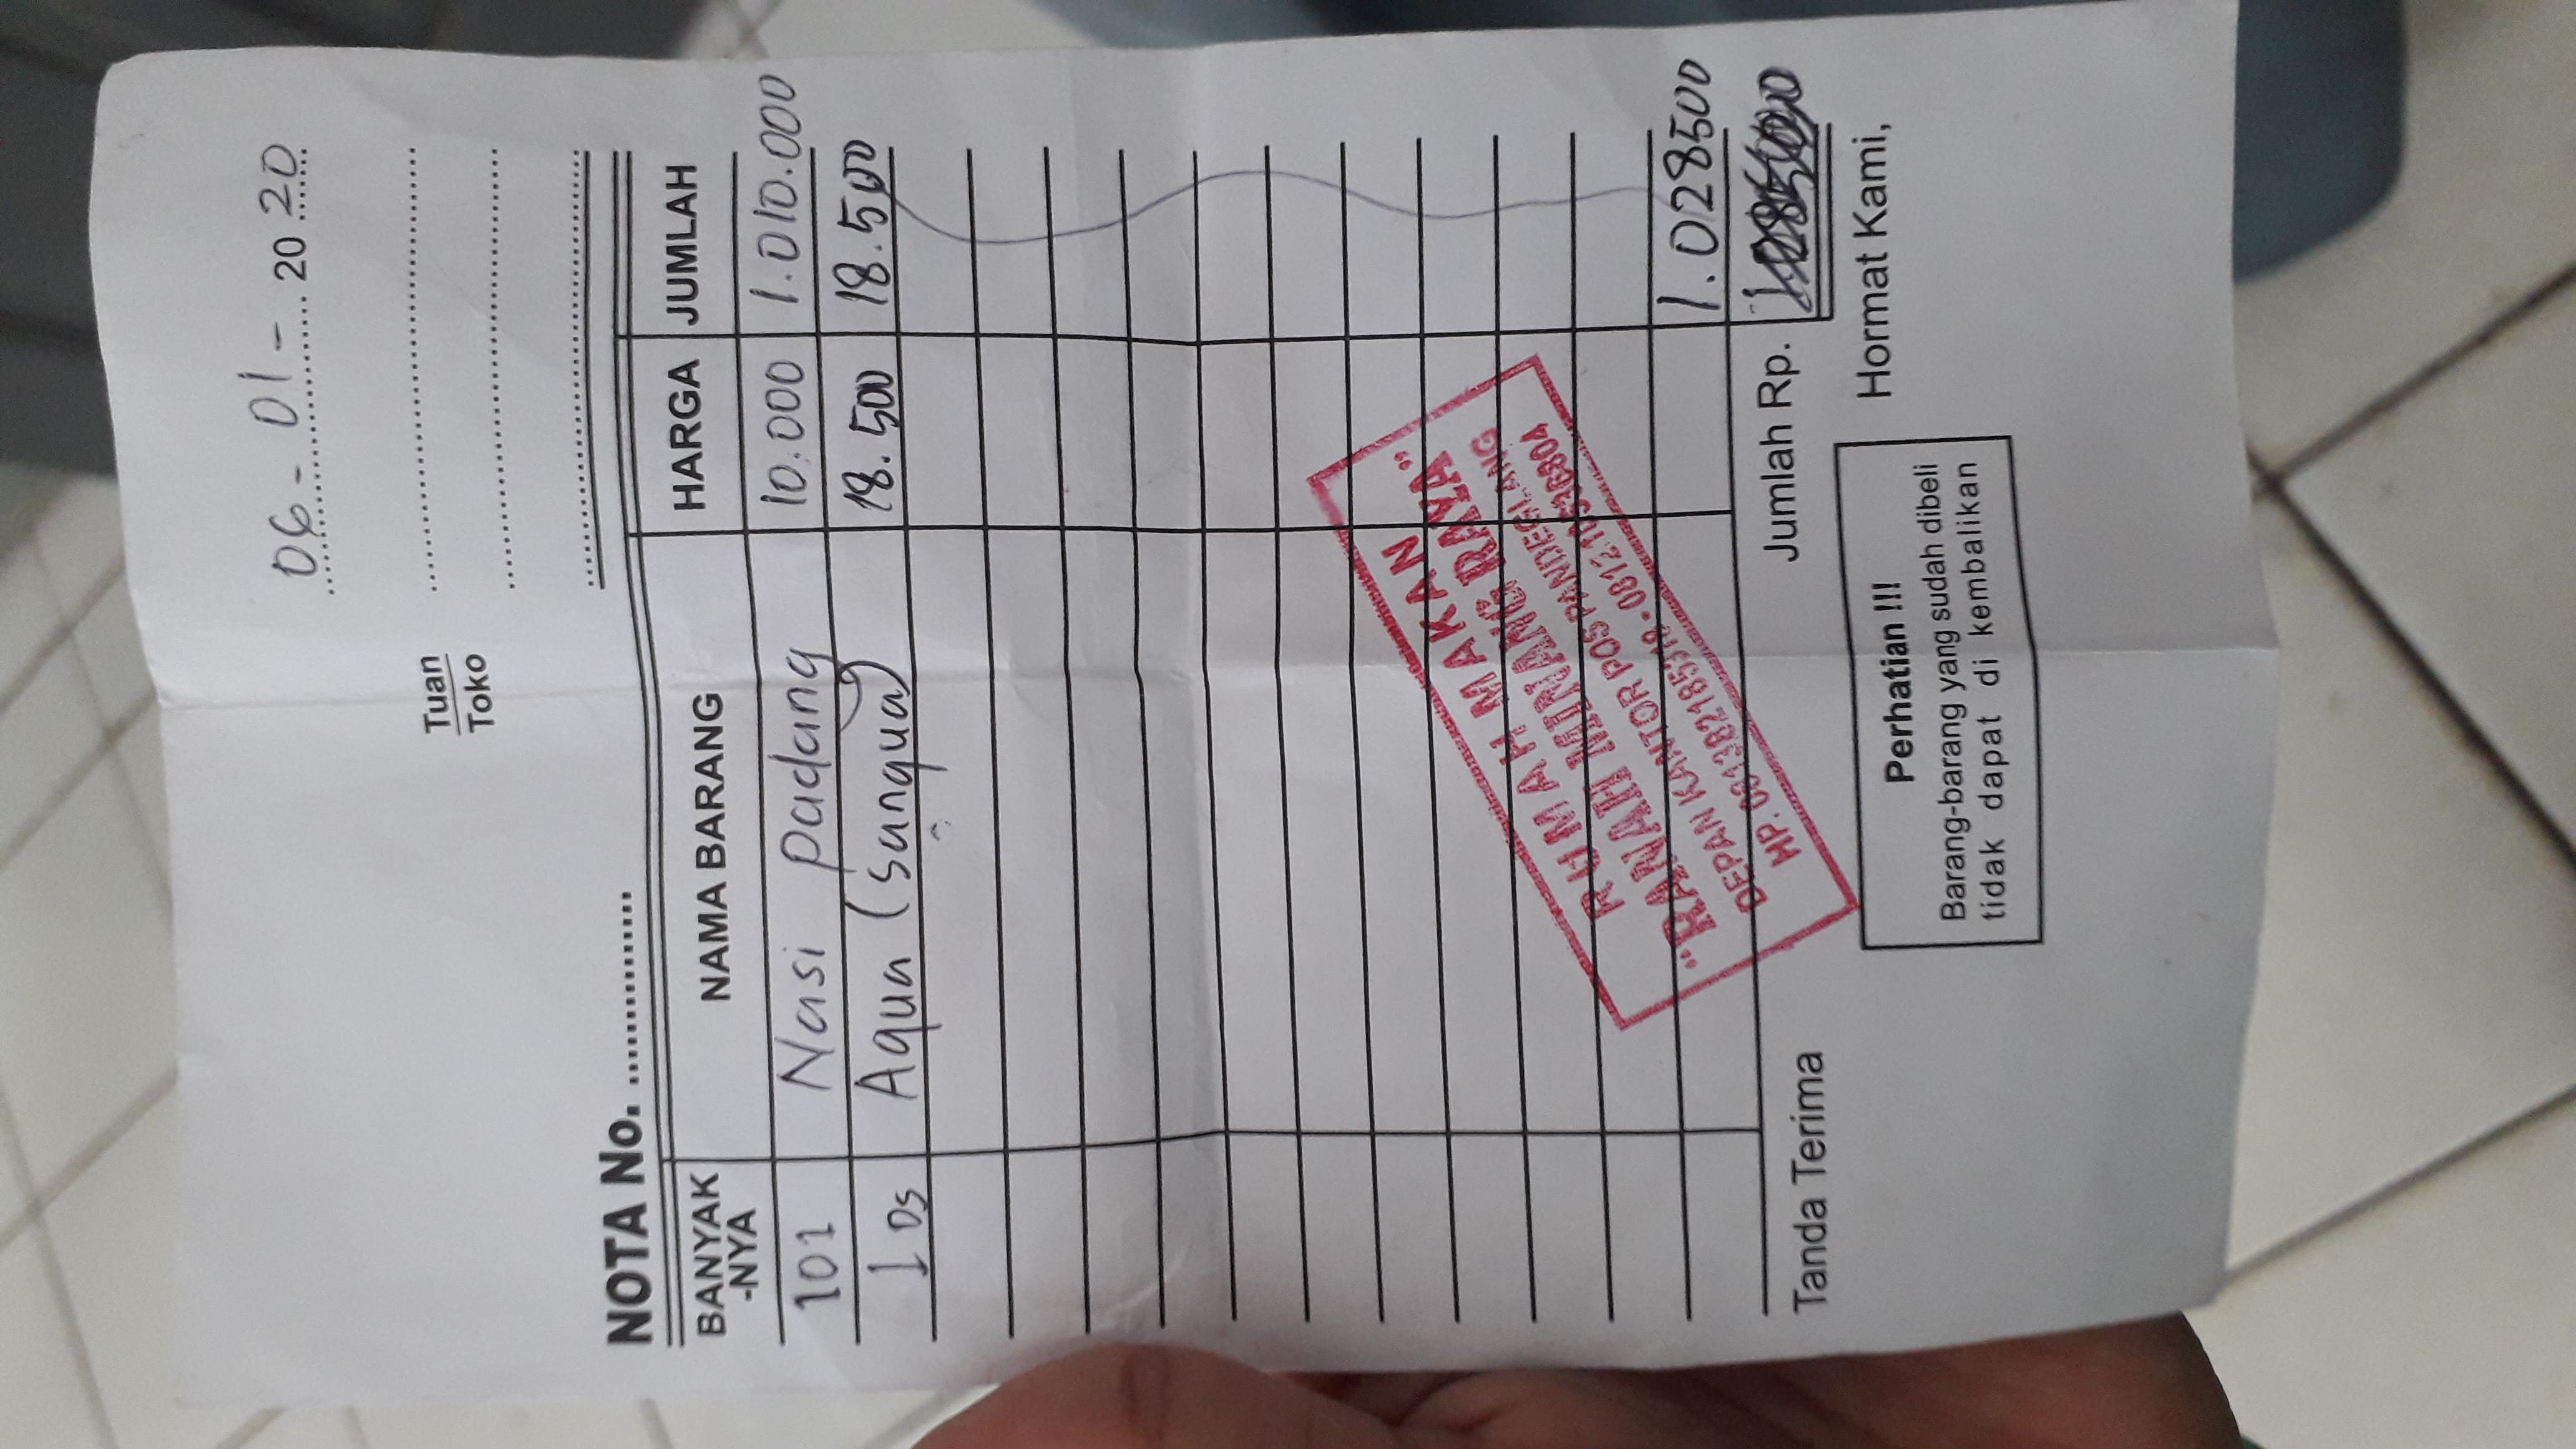 06-01-20 20
Tuan
Toko
NOTA No. ................
BANYAK -NYA NAMA BARANG HARGA JUMLAH
101 Nasi padang 10.000 1.010.000
1 Ds Aqua (sanqua) 18.500 18.500
RUMAH MAKAN
"RANAH MINANG RAYA"
DEPAN KANTOR POS PANDEGLANG
HP.
1.028500
Jumlah Rp.
Tanda Terima Hormat Kami,
Perhatian !!!
Barang-barang yang sudah dibeli
tidak dapat di kembalikan